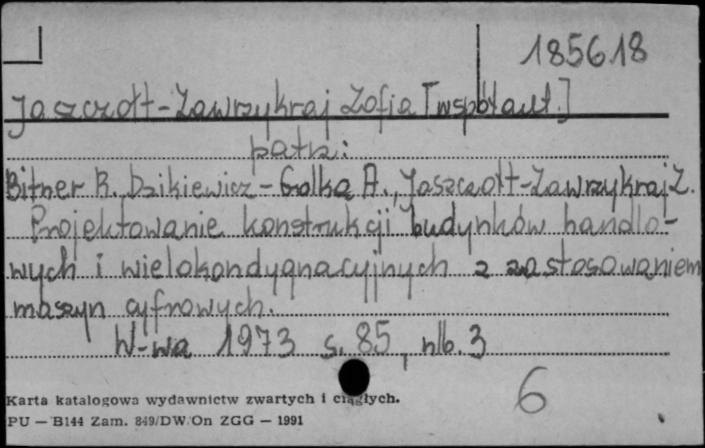 185618
Jaszczołt-Zawrzykraj Zofia [współaut.]
patrz:
Bitner B., Dzikiewicz-Golka A., Jaszczołt-Zawrzykraj Z.
Projektowanie konstrukcji budynków handlo-
wych i wielokondygnacyjnych z zastosowaniem
maszyn cyfrowych.
W-wa 1973 s. 85, nlb. 3
6
Karta katalogowa wydawnictw zwartych i ciągłych.
PU — B144 Zam. 849/DW/On ZGG — 1991